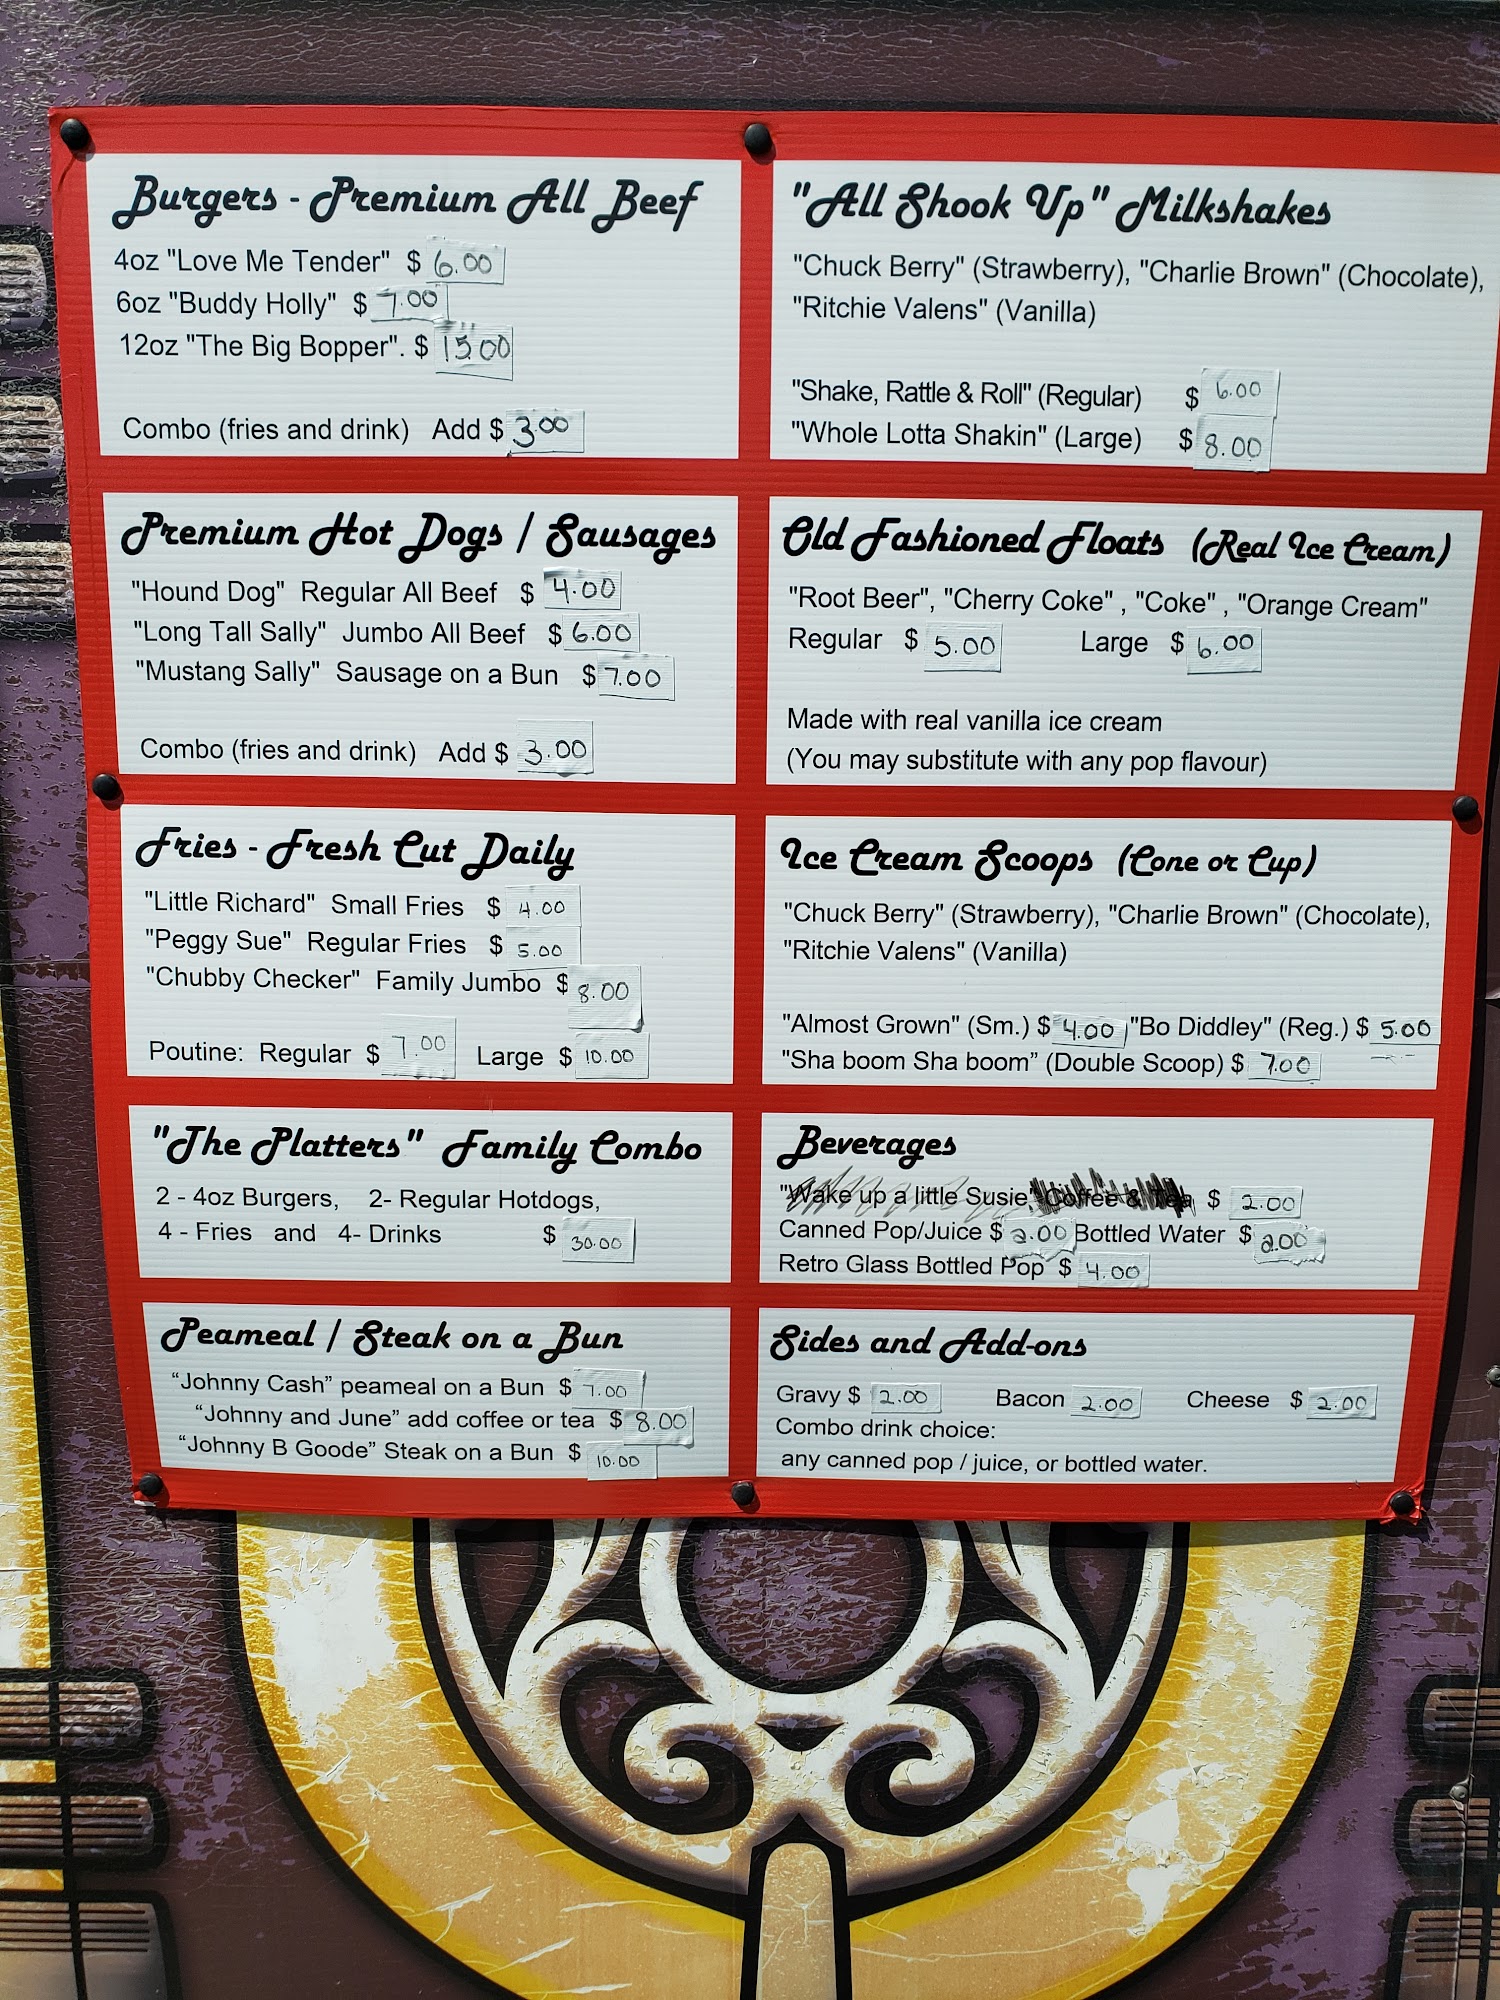 Burgers - Premium All Beef
4oz "Love Me Tender" $ 6.00
6oz "Buddy Holly" $ 7.00
12oz "The Big Bopper". $ 15.00
Combo (fries and drink) Add $ 3.00
Premium Hot Dogs / Sausages
"Hound Dog" Regular All Beef $ 4.00
"Long Tall Sally" Jumbo All Beef $ 6.00
"Mustang Sally" Sausage on a Bun $ 7.00
Combo (fries and drink) Add $ 3.00
Fries - Fresh Cut Daily
"Little Richard" Small Fries $ 4.00
"Peggy Sue" Regular Fries $ 5.00
"Chubby Checker" Family Jumbo $ 8.00
Poutine: Regular $ 7.00 Large $ 10.00
"The Platters" Family Combo
2 - 4oz Burgers, 2- Regular Hotdogs,
4 - Fries and 4- Drinks $ 30.00
Peameal / Steak on a Bun
“Johnny Cash” peameal on a Bun $ 7.00
“Johnny and June” add coffee or tea $ 8.00
“Johnny B Goode” Steak on a Bun $ 10.00
"All Shook Up" Milkshakes
"Chuck Berry" (Strawberry), "Charlie Brown" (Chocolate),
"Ritchie Valens" (Vanilla)
"Shake, Rattle & Roll" (Regular) $ 6.00
"Whole Lotta Shakin" (Large) $ 8.00
Old Fashioned Floats (Real Ice Cream)
"Root Beer", "Cherry Coke" , "Coke" , "Orange Cream"
Regular $ 5.00 Large $ 6.00
Made with real vanilla ice cream
(You may substitute with any pop flavour)
Ice Cream Scoops (Cone or Cup)
"Chuck Berry" (Strawberry), "Charlie Brown" (Chocolate),
"Ritchie Valens" (Vanilla)
"Almost Grown" (Sm.) $ 4.00 "Bo Diddley" (Reg.) $ 5.00
"Sha boom Sha boom” (Double Scoop) $ 7.00
Beverages
"Wake up a little Susie" Coffee & Tea $ 2.00
Canned Pop/Juice $ 2.00 Bottled Water $ 2.00
Retro Glass Bottled Pop $ 4.00
Sides and Add-ons
Gravy $ 2.00 Bacon 2.00 Cheese $ 2.00
Combo drink choice:
any canned pop / juice, or bottled water.